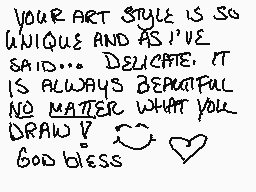 YOUR ART STYLE IS SO
UNIQUE AND AS I'VE
SAID... DELICATE. IT
IS ALWAYS BEAUTIFUL
NO MATTER WHAT YOU
DRAW!
GOD blESS